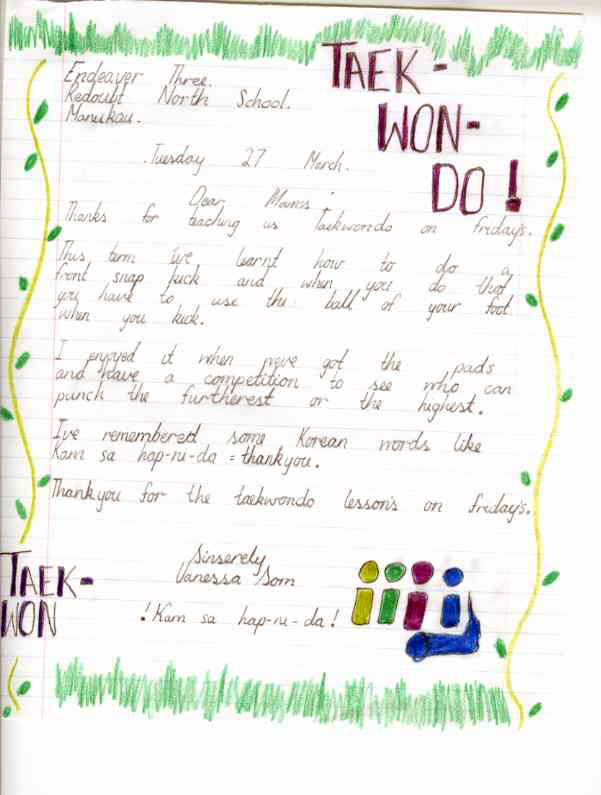 TAEK-
WON-
DO!
Endeaver Three.
Redoubt North School.
Manukau.
Tuesday 27 March.
Dear
Thanks for teaching us Taekwondo on friday's.
This term I've learnt how to do a
front snap kick and when you do that
you have to use the ball of your foot
when you kick.
I enjoyed it when we've got the pads
and have a competition to see who can
punch the furtherest or the highest.
I've remembered some Korean words like
Kam sa hap-ni-da = thankyou.
Thankyou for the taekwondo lesson's on friday's.
Sinserely
Vanessa Som
!Kam sa hap-ni-da!
TAEK-
WON